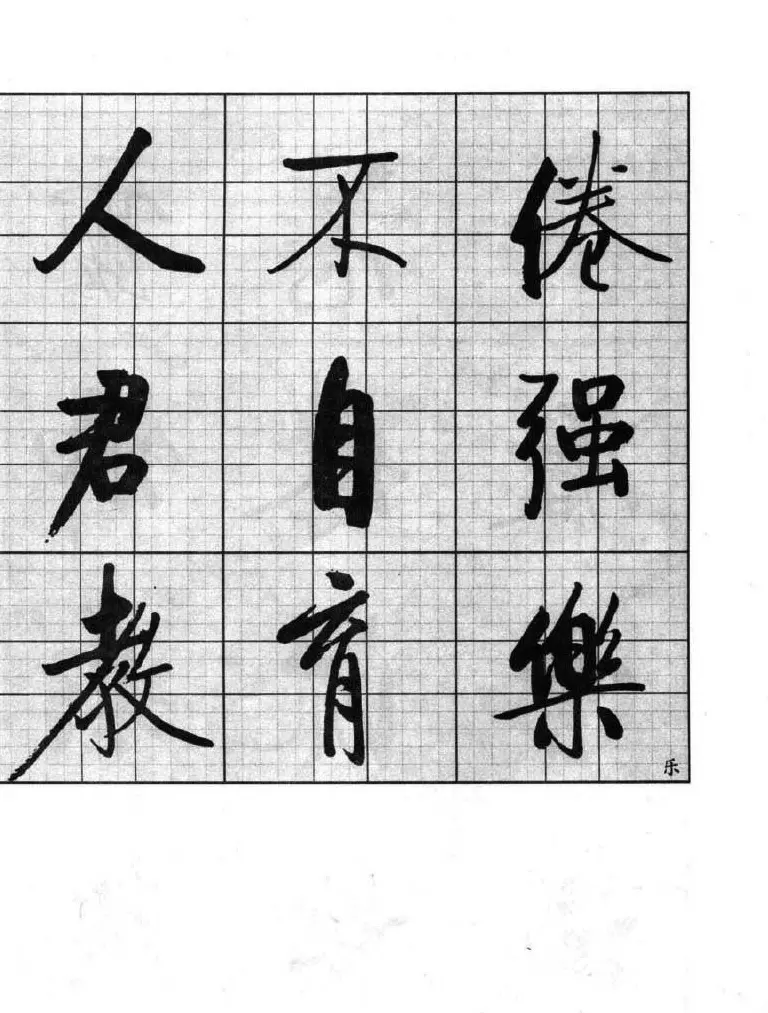 人不倦
君自强
教育樂
乐